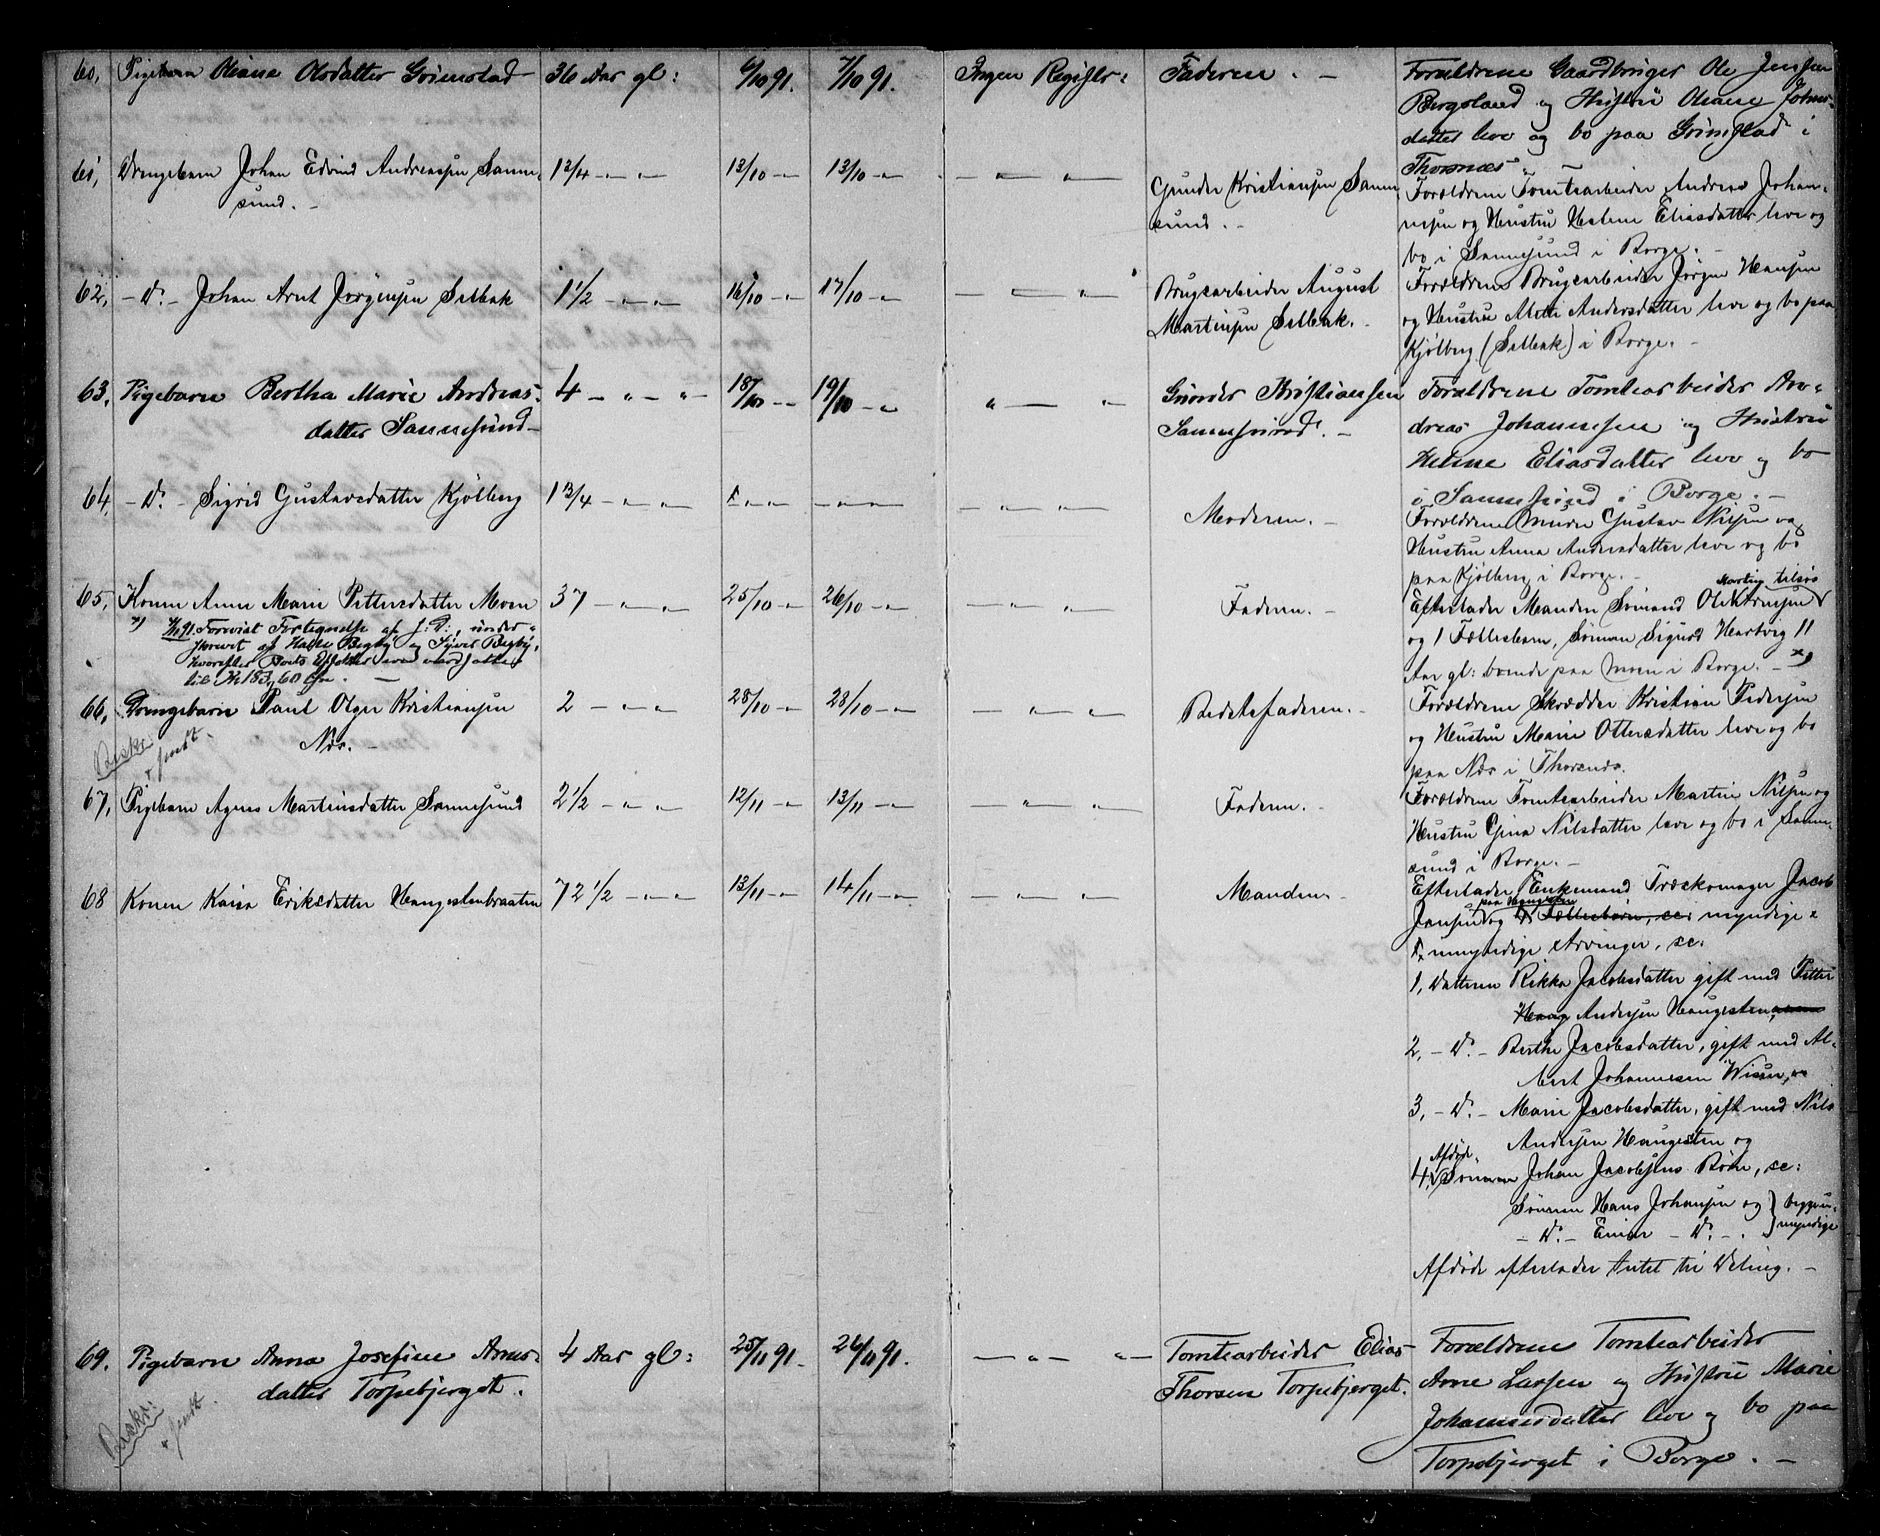 60, Pigebarn Oliane Olsdatter Grimstad 36 Aar gl: 6/10 91. 7/10 91. Ingen Registr: Faderen. - Forældrene Gaardbruger Ole Jensen
Bergsland og Hustru Oliane Johns-
datter leve og bo paa Grimstad i
Thorsnæs. -
61, Drengebarn Johan Edvind Andreasen Sanne- 1 2/4 - " - 13/10 - " 13/10 - " - " - " Gunder Kristiansen Sanne-
sund. -
sund. -
Forældrene Tomtearbeider Andreas Johan-
nesen og Hustru Helene Eliasdatter leve og
bo i Sannesund i Borge. -
62, - D: - Johan Arnt Jørgensen Selbak 1 1/2 - " - 16/10 - " 17/10 - " - " - " Brugsarbeider August
Martinsen Selbak. -
Forældrene Brugsarbeider Jørgen Hansen
og Hustru Mette Andersdatter leve og bo paa
Kjølberg (Selbak) i Borge. -
63, Pigebarn Bertha Marie Andreas- 4 - " - " 18/10 - " 19/10 - " " - " Gunder Kristiansen
datter Sannesund -
Sannesund. -
Forældrene Tomtearbeider An-
dreas Johannesen og Hustru
Helene Eliasdatter leve og bo
i Sannesund i Borge. -
64, - D: - Sigrid Gustavsdatter Kjølberg 1 3/4 - " - " - " - " - " - " - " Moderen. -
Forældrene Murer Gustav Nilsen og
Hustru Anna Andersdatter leve og bo
paa Kjølberg i Borge. -
65, Konen Anne Marie Pettersdatter Moen 37 - " - " 25/10 - " 26/10 - " - " - " Faderen. -
x) Forevist Fortegnelse af under-
skrevet af Halle Begby og Syver Begby,
hvorefter Boets Effekter ere værdsatte
til Kr 183,60 Øre. -
Martin tilsøs
Efterlader Manden Sømand Olektrinsen
og 1 Fællesbarn, Sønnen Sigurd Hartvig 11
Aar gl: boende paa Moen i Borge. - x)
66, Drengebarn Paul Olger Kristiansen 2 - " - " 28/10 - " 28/10 - " - " - " Bedstefaderen. -
Næs. -
Beskr:
sendt.
Forældrene Skrædder Kristian Pedersen
og Hustru Marie Ottersdatter leve og bo
paa Næs i Thorsnæs.
67, Pigebarn Agnes Martinsdatter Sannesund 2 1/2 - " - " 12/11 - " 13/11 - " " " Faderen. -
Forældrene Tomtearbeider Martin Nilsen og
Hustru Gina Nilsdatter leve og bo i Sanne-
sund i Borge. -
68 Konen Kaisa Eriksdatter Haugestenbraaten 72 1/2 - " - " 13/11 - " 14/11 - " - " - " Manden. -
Efterlader Enkemand Træskomager Jacob
paa Haugesten
Jansen og 4 Fællesbørn, sc: myndige &
umyndige Arvinger, sc:
1, Datteren Rikka Jacobsdatter gift med Petter
Haag Andersen Haugesten
2, - D: - Berthe Jacobsdatter, gift med Al-
bert Johannesen
3, - D: - Marie Jacobsdatter, gift med Nils
Andersen Haugesten og
Afdøde
4, Sønnen Johan Jacobsens Børn, sc:
Sønnen Hans Johansen og } begge u-
- D: - Einar - D: - . } myndige
Afdøde efterlader Intet til Deling. -
69. Pigebarn Anna Josefine Arnes- 4 Aar gl: 25/11 91. 26/11 91. - " - " - Tomtearbeider Elias
datter Torpebjerget.
Thorsen Torpebjerget.
Beskr:
sendt.
Forældrene Tomtearbeider
Arne Larsen og Hustru Marie
Johannesdatter leve og bo paa
Torpebjerget i Borge. -